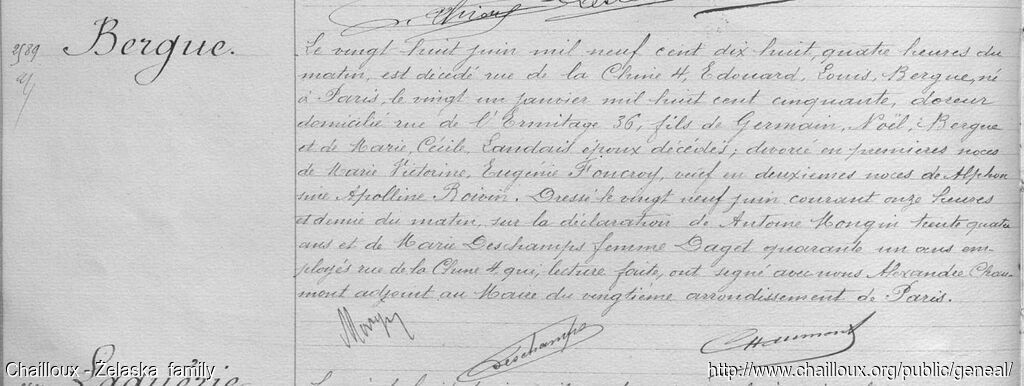 2589
Bergue.
Le vingt huit juin mil neuf cent dix huit, quatre heures du
matin, est décédé rue de la Chine 4, Edouard, Louis, Bergue, né
à Paris, le vingt un janvier mil huit cent cinquante, doreur
domicilié rue de l'Ermitage 36, fils de Germain, Noël, Bergue
et de Marie, Cécile, Landais époux décédés; divorcé en premières noces
de Marie Victorine, Eugénie Foucroy, veuf en deuxièmes noces de Alphon
sine Apolline Boivin. Dressé le vingt neuf juin courant onze heures
et demie du matin, sur la déclaration de Antoine Mongin trente quatre
ans et de Marie Deschamps femme Daget quarante un ans em-
ployés rue de la Chine 4, qui, lecture faite, ont signé avec nous Alexandre Chau-
mont adjoint au Maire du vingtième arrondissement de Paris.
Mongin
Deschamps
Chaumont
Laguérie
Chailloux - Żelaska family
http://www.chailloux.org/public/geneal/